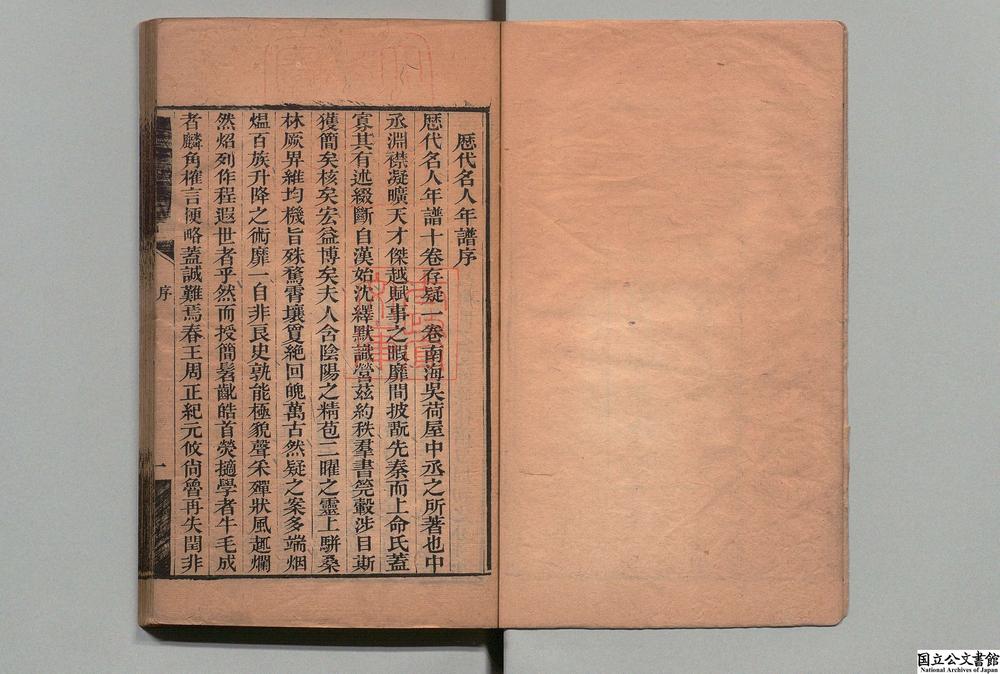 歴代名人年譜序
歴代名人年譜十卷存疑一卷南海吳荷屋中丞之所著也中
丞淵襟凝曠天才傑越賦事之暇靡間披翫先秦而上命氏蓋
寡其有述綴斷自漢始沈繹默識營茲約秩羣書筦轂涉目斯
獲簡矣核矣宏益博矣夫人含陰陽之精苞二曜之靈上駢桑
林厥界維均機旨殊騖霄壤夐絶回皝萬古然疑之案多端烟
熅百族升降之術靡一自非良史孰能極貌聲釆殫狀風𧼈爛
然炤列作程遐世者乎然而授簡髫齔皓首熒擿學者牛毛成
者麟角榷言梗略蓋誠難焉春王周正紀元攸尙魯再失閏非
序
一
国立公文書館
National Archives of Japan